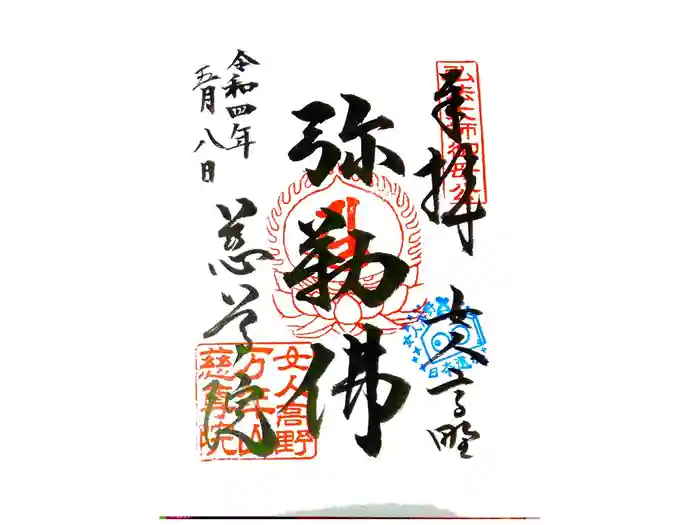 奉拝
女人高野
弥勒佛
慈尊院
令和四年
五月八日
弘法大師御母公
女人高野
万年山
慈尊院
日本遺産